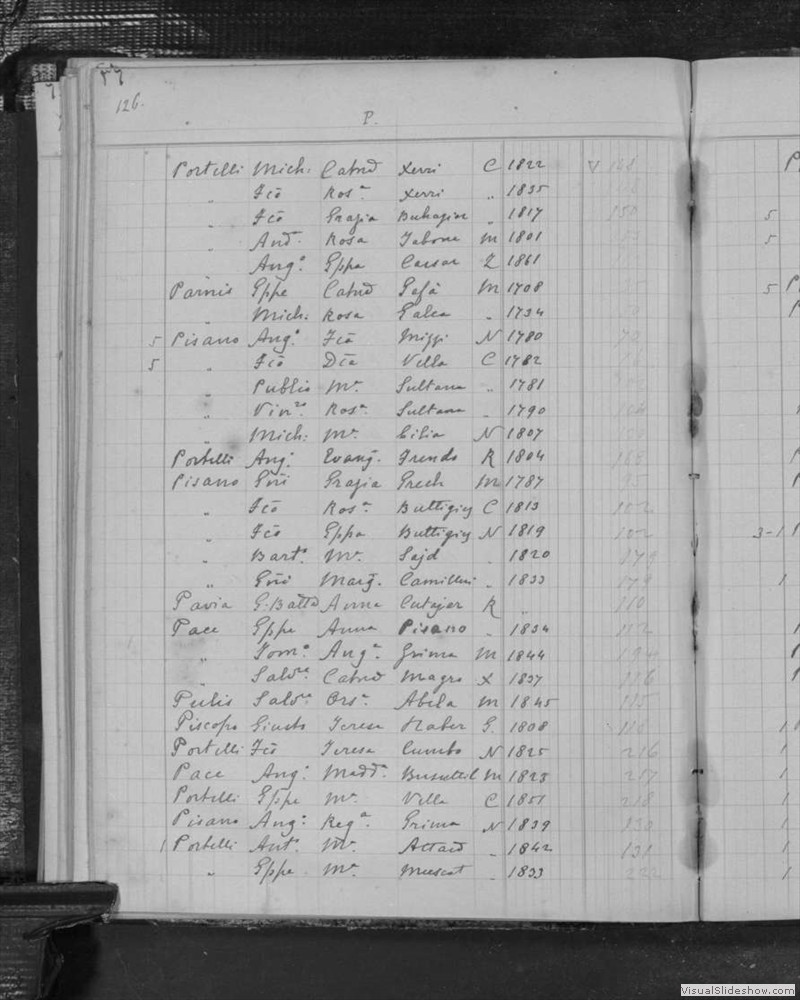 126.
P.
Portelli Mich: Catnd Xerri C 1822
„ Fco Rosa Xerri „ 1835
„ Fco Grazia Buhagiar „ 1817 5
„ And. Rosa Tabone M 1801 5
Anga Gppa Caesar Z 1861
Parnis Gppe Catnd Gafà M 1708 5
„ Mich: Rosa Galea „ 1734
5 Pisano Ango Fca Mizzi N 1780
5 „ Fco Dca Vella C 1782
„ Publio Ma Sultana „ 1781
„ Vinzo Rosa Sultana „ 1790
„ Mich: Ma Cilia N 1807
Portelli Ango Evang. Frendo R 1804
Pisano Gni Grazia Grech M 1787
„ Fco Rosa Buttigieg C 1813 102
„ Fco Gppa Buttigieg N 1819 102 3-1
„ Barto Ma Sajd 1820 179
„ Gni Marg. Camilleri „ 1833 179 1
Pavia G.Batta Anna Cutajar R „ 110
Pace Gppe Anna Pisano „ 1834 112
„ Toma Anga Grima M 1844 194
„ Salvre Catnd Magro X 1837 116
Pulis Salvre Orsa Abela M 1845 115
Piscopo Giusto Teresa Haber G. 1808 116
Portelli Fco Teresa Cumbo N 1825 216 1
Pace Ango Madd. Busuttil M 1823 217 1
Portelli Gppe Ma Vella C 1851 218 1
Pisano Ango Rega Grima N 1839 130 1
1 Portelli Anto Ma Attard „ 1842 131 1
„ Gppe Ma Muscat „ 1833 222 1
VisualSlideshow.com